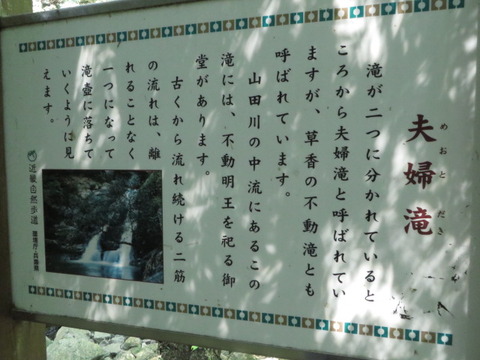 夫婦滝
めおとだき
滝が二つに分かれていると
ころから夫婦滝と呼ばれてい
ますが、草香の不動滝とも
呼ばれています。
山田川の中流にあるこの
滝には、不動明王を祀る御
堂があります。
古くから流れ続ける二筋
の流れは、離
れることなく
一つになって
滝壺に落ちて
いくように見
えます。
近畿自然歩道
環境庁・兵庫県